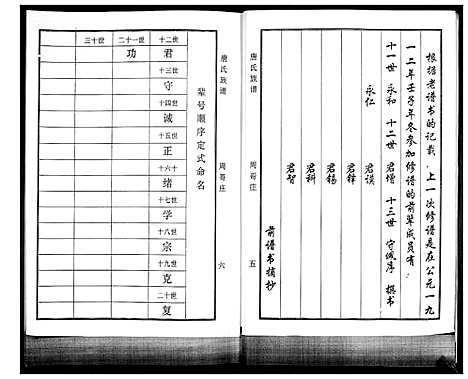 根据老谱书的记载，上一次修谱是在公元一九
一二年壬子年冬参加修谱的前辈成员有：
十一世 永和 十二世 君增 十三世 守佩序 撰书
永仁 君谟
君锋
君锡
君科
君智
前谱书摘抄
唐氏族谱 周哥庄 五
唐氏族谱 周哥庄 六
辈号顺序定式命名
十二世 君
十三世 守
十四世 诚
十五世 正
十六世 绪
十七世 学
十八世 宗
十九世 克
二十世 复
二十一世 功
三十世